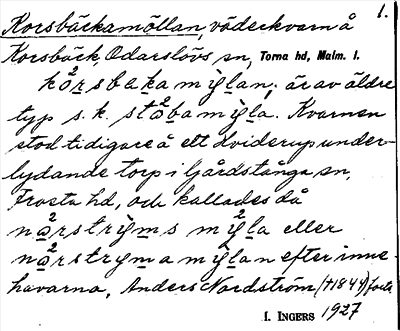 1.
Korsbäckamöllan, väderkvarn å
Korsbäck, Odarslövs sn, Torna hd, Malm. l.
kårsbækamỳlan; är av äldre
typ s. k. ståbamỳla. Kvarnen
stod tidigare å ett Dviderup under-
lydande torp i Gårdstånga sn,
Frosta hd, och kallades då
nạrstrỳms mỳla eller
nạrstryma mỳlan efter inne-
havarna, Anders Nordström (†1844) förste
I. INGERS 1927